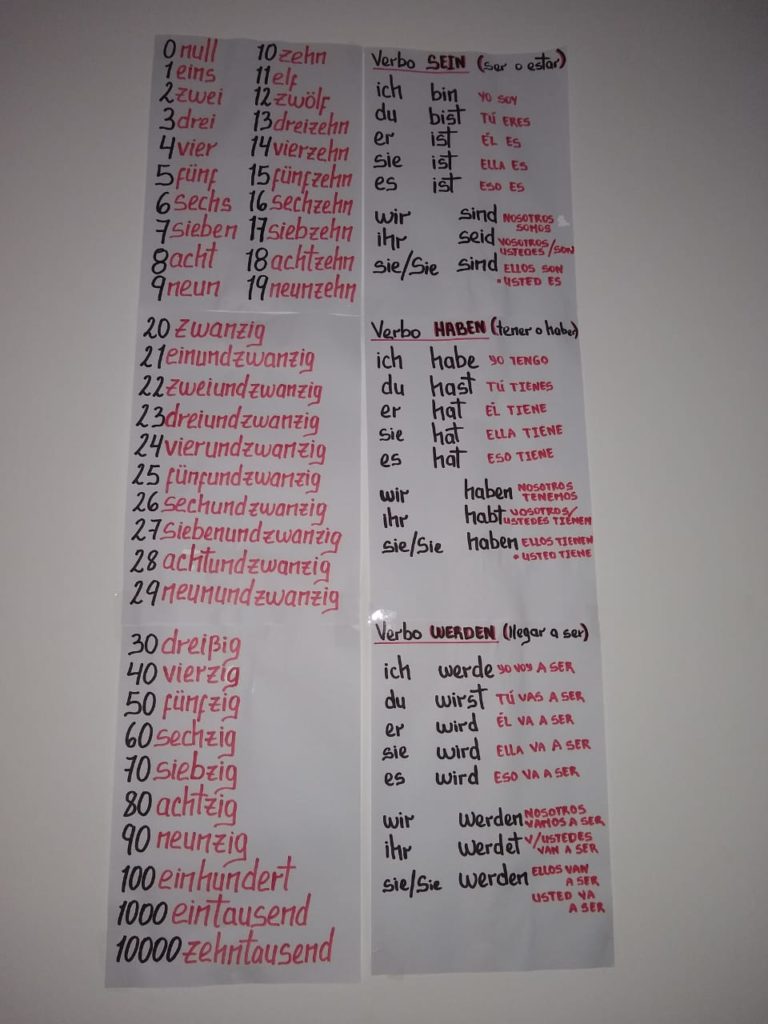 0 null
1 eins
2 zwei
3 drei
4 vier
5 fünf
6 sechs
7 sieben
8 acht
9 neun
10 zehn
11 elf
12 zwölf
13 dreizehn
14 vierzehn
15 fünfzehn
16 sechzehn
17 siebzehn
18 achtzehn
19 neunzehn
20 zwanzig
21 einundzwanzig
22 zweiundzwanzig
23 dreiundzwanzig
24 vierundzwanzig
25 fünfundzwanzig
26 sechundzwanzig
27 siebenundzwanzig
28 achtundzwanzig
29 neunundzwanzig
30 dreißig
40 vierzig
50 fünfzig
60 sechzig
70 siebzig
80 achtzig
90 neunzig
100 einhundert
1000 eintausend
10000 zehntausend
Verbo SEIN (ser o estar)
ich bin YO SOY
du bist TÚ ERES
er ist ÉL ES
sie ist ELLA ES
es ist ESO ES
wir sind NOSOTROS SOMOS
ihr seid VOSOTROS/USTEDES/SON
sie/Sie sind ELLOS SON
• USTED ES
Verbo HABEN (tener o haber)
ich habe YO TENGO
du hast TÚ TIENES
er hat ÉL TIENE
sie hat ELLA TIENE
es hat ESO TIENE
wir haben NOSOTROS TENEMOS
ihr habt VOSOTROS/USTEDES TIENEN
sie/Sie haben ELLOS TIENEN
• USTED TIENE
Verbo WERDEN (llegar a ser)
ich werde YO VOY A SER
du wirst TÚ VAS A SER
er wird ÉL VA A SER
sie wird ELLA VA A SER
es wird ESO VA A SER
wir werden NOSOTROS VAMOS A SER
ihr werdet V/USTEDES VAN A SER
sie/Sie werden ELLOS VAN A SER
USTED VA A SER